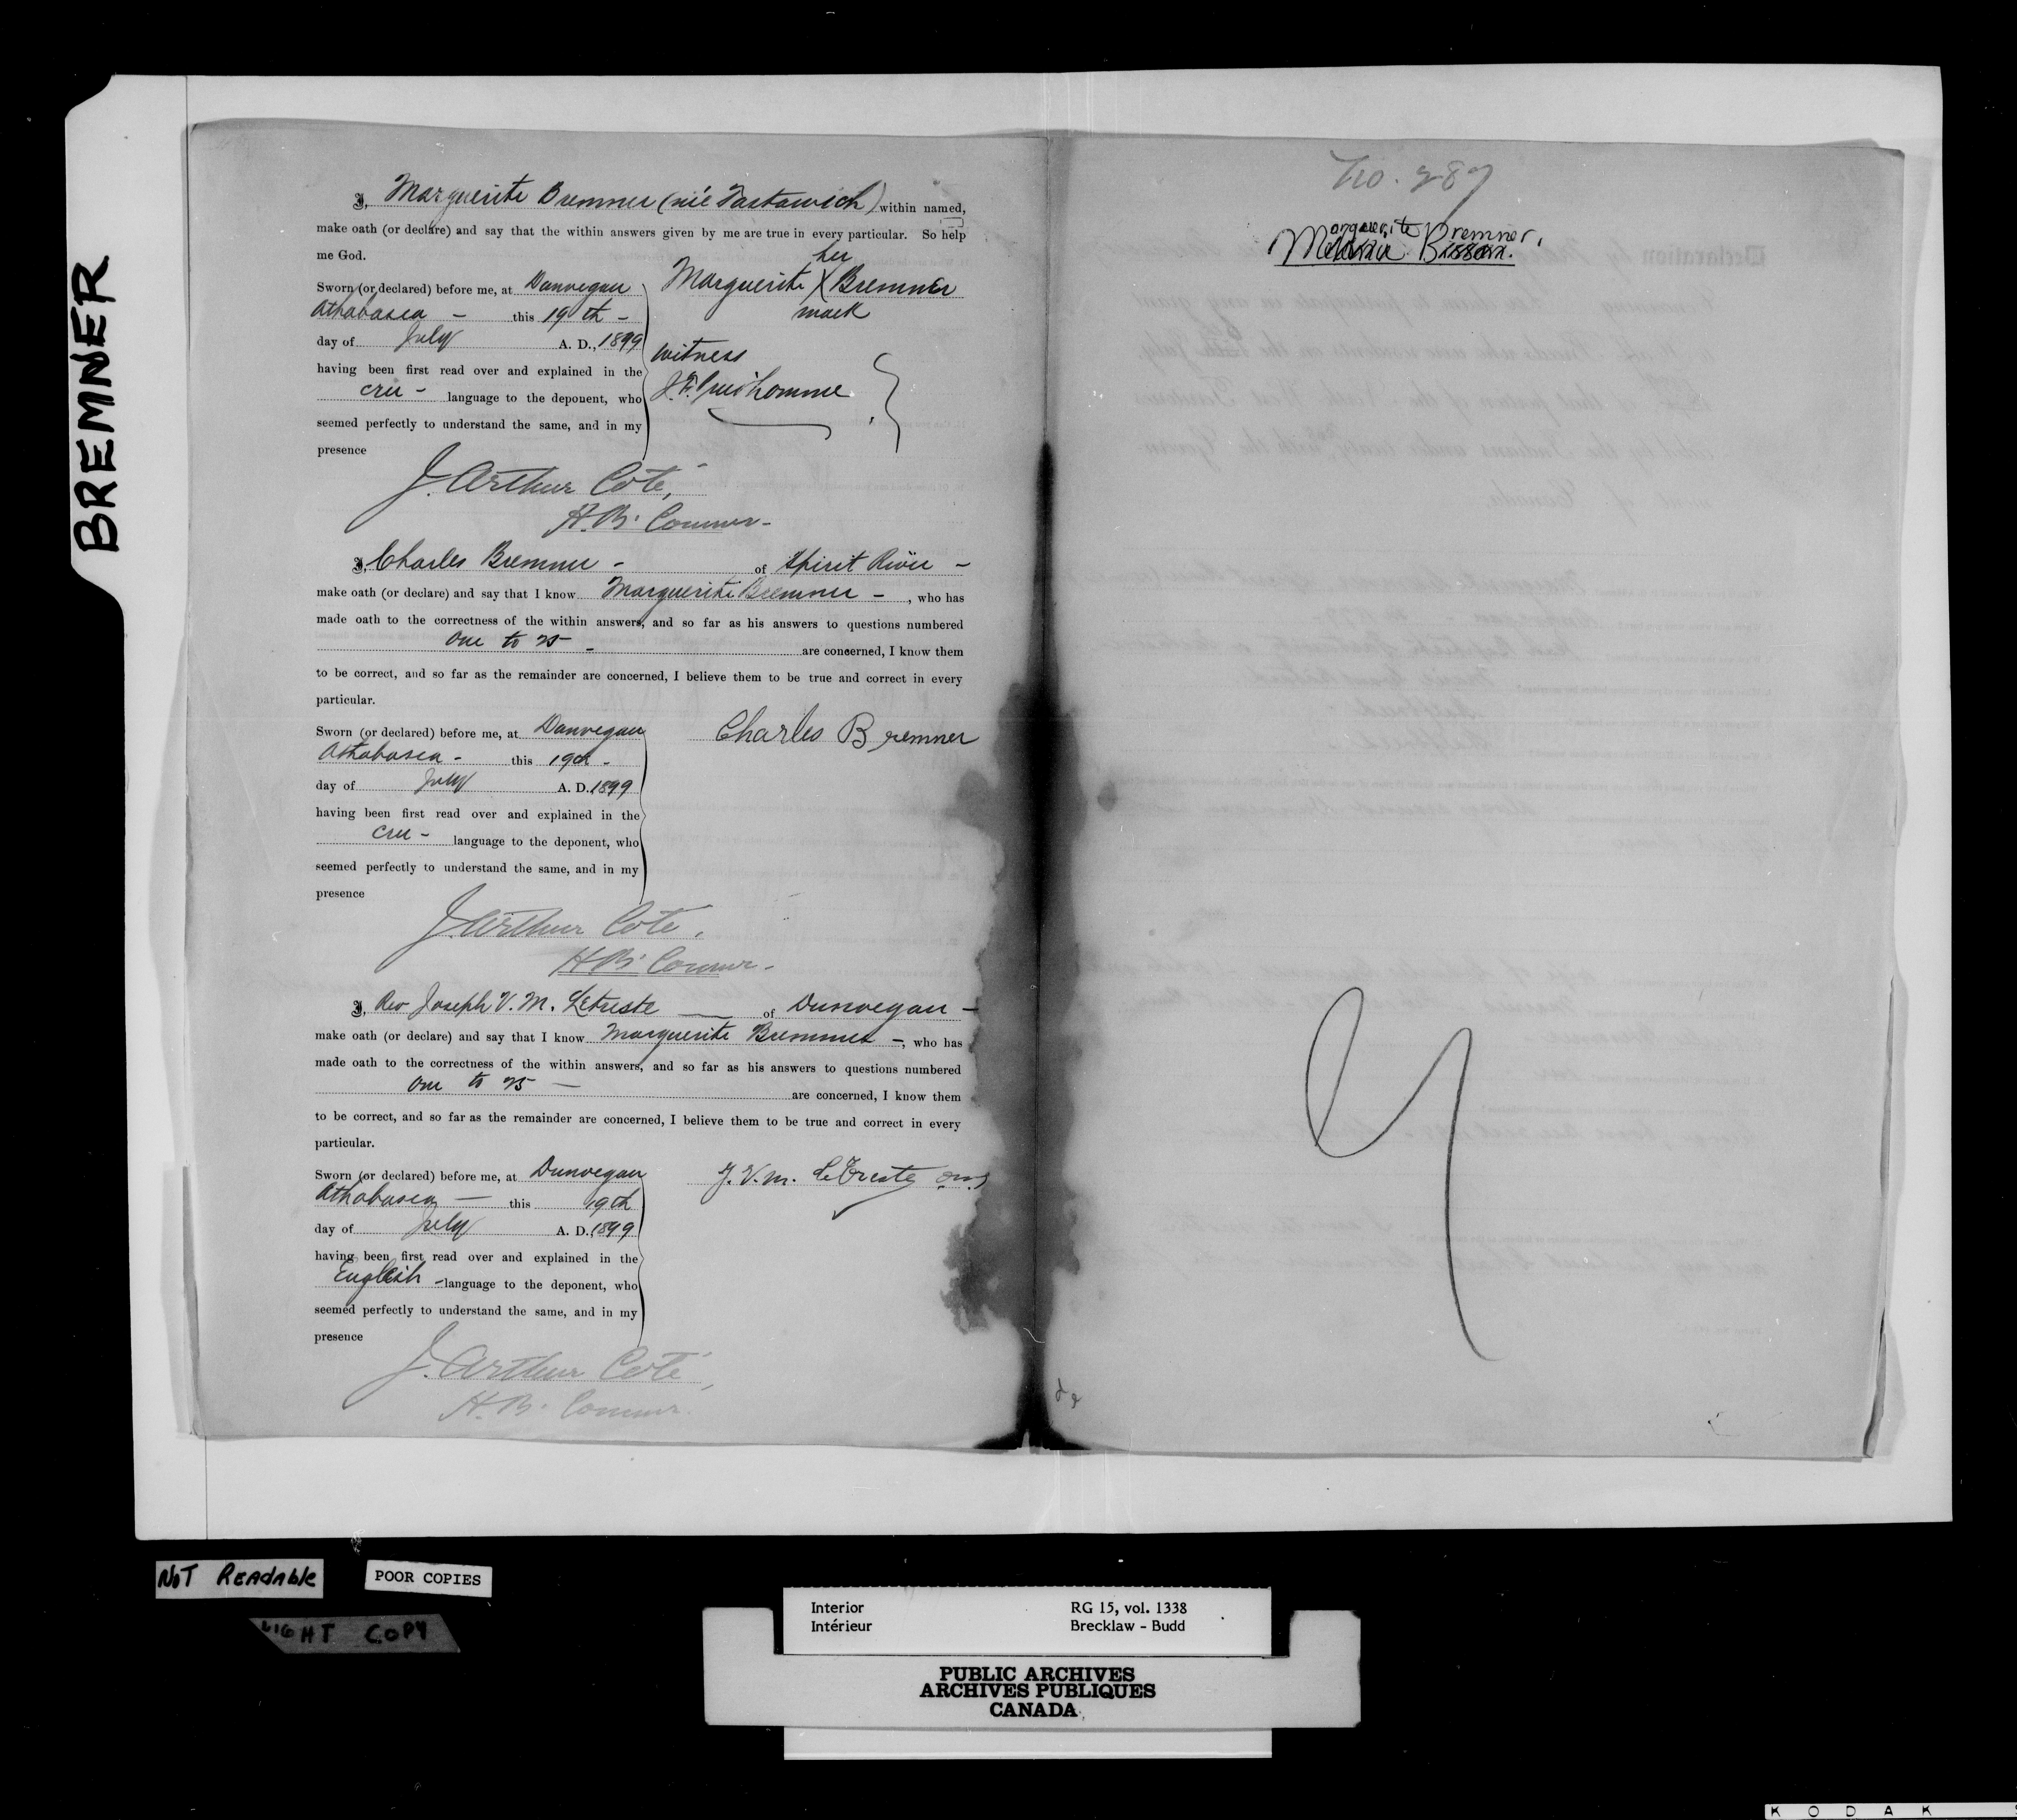 BREMNER
I, Marguerite Bremner (née Tastawich) within named,
make oath (or declare) and say that the within answers given by me are true in every particular. So help
me God.
Sworn (or declared) before me, at Dunvegan
Athabasca - this 19th -
day of July A. D., 1899
having been first read over and explained in the
cree - language to the deponent, who
seemed perfectly to understand the same, and in my
presence
her
Marguerite X Bremner
mark
witness
J. F. Prud'homme
J. Arthur Coté,
H. B. Commr-
I, Charles Bremner - of Spirit River -
make oath (or declare) and say that I know Marguerite Bremner -, who has
made oath to the correctness of the within answers, and so far as his answers to questions numbered
One to 25 - are concerned, I know them
to be correct, and so far as the remainder are concerned, I believe them to be true and correct in every
particular.
Sworn (or declared) before me, at Dunvegan
Athabasca - this 19th -
day of July A. D. 1899
having been first read over and explained in the
cree - language to the deponent, who
seemed perfectly to understand the same, and in my
presence
Charles Bremner
J. Arthur Coté.
H. B. Commr-
I, Rev Joseph V. M. Letreste of Dunvegan -
make oath (or declare) and say that I know Marguerite Bremner -, who has
made oath to the correctness of the within answers, and so far as his answers to questions numbered
One to 25 - are concerned, I know them
to be correct, and so far as the remainder are concerned, I believe them to be true and correct in every
particular.
Sworn (or declared) before me, at Dunvegan
Athabasca - this 19th
day of July A. D. 1899
having been first read over and explained in the
English - language to the deponent, who
seemed perfectly to understand the same, and in my
presence
J. V. M. LeTreste omi
J. Arthur Coté,
H. B. Commr.
No. 287
Marguerite Bremner.
NOT READABLE
POOR COPIES
LIGHT COPY
Interior RG 15, vol. 1338
Intérieur Brecklaw - Budd
PUBLIC ARCHIVES
ARCHIVES PUBLIQUES
CANADA
KODAK